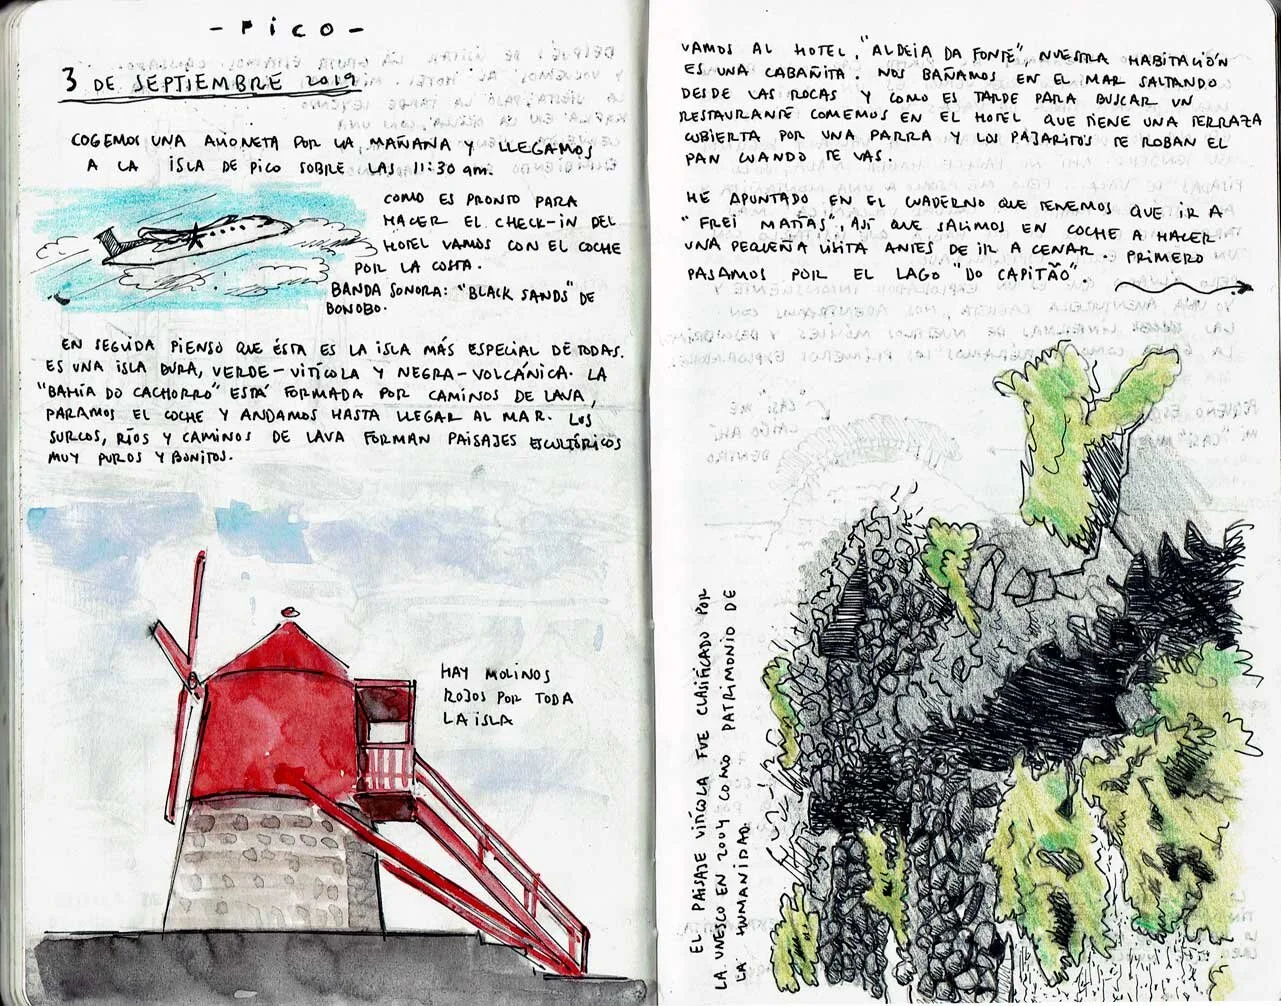 - PICO -
3 DE SEPTIEMBRE 2019
COGEMOS UNA AVIONETA POR LA MAÑANA Y LLEGAMOS
A LA ISLA DE PICO SOBRE LAS 11:30 am.
COMO ES PRONTO PARA
HACER EL CHECK-IN DEL
HOTEL VAMOS CON EL COCHE
POR LA COSTA.
BANDA SONORA: "BLACK SANDS" DE
BONOBO.
EN SEGUIDA PIENSO QUE ÉSTA ES LA ISLA MÁS ESPECIAL DE TODAS.
ES UNA ISLA DURA, VERDE-VITÍCOLA Y NEGRA-VOLCÁNICA. LA
"BAHÍA DO CACHORRO" ESTÁ FORMADA POR CAMINOS DE LAVA,
PARAMOS EL COCHE Y ANDAMOS HASTA LLEGAR AL MAR. LOS
SURCOS, RÍOS Y CAMINOS DE LAVA FORMAN PAISAJES ESCULTÓRICOS
MUY PUROS Y BONITOS.
HAY MOLINOS
ROJOS POR TODA
LA ISLA
VAMOS AL HOTEL, "ALDEIA DA FONTE", NUESTRA HABITACIÓN
ES UNA CABAÑITA. NOS BAÑAMOS EN EL MAR SALTANDO
DESDE LAS ROCAS Y COMO ES TARDE PARA BUSCAR UN
RESTAURANTE COMEMOS EN EL HOTEL QUE TIENE UNA TERRAZA
CUBIERTA POR UNA PARRA Y LOS PAJARITOS TE ROBAN EL
PAN CUANDO TE VAS.
HE APUNTADO EN EL CUADERNO QUE TENEMOS QUE IR A
"FREI MATÍAS", ASÍ QUE SALIMOS EN COCHE A HACER
UNA PEQUEÑA VISITA ANTES DE IR A CENAR. PRIMERO
PASAMOS POR EL LAGO "DO CAPITÃO".
EL PAISAJE VITÍCOLA FUE CLASIFICADO POR
LA UNESCO EN 2004 COMO PATRIMONIO DE
LA HUMANIDAD.